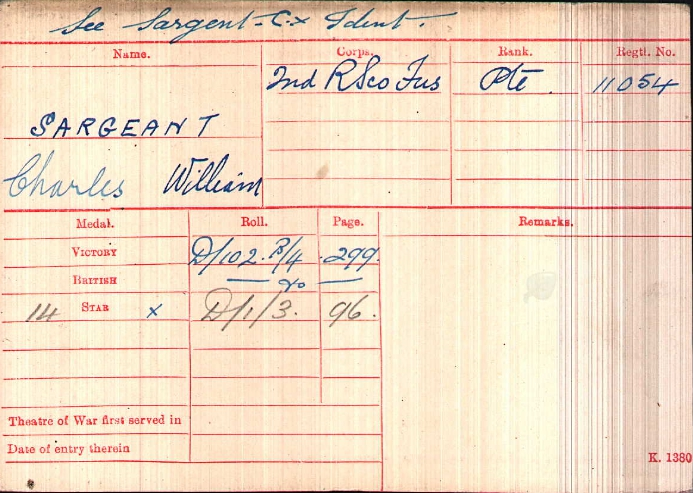 See Sargent - C. x Ident.
Name. Corps. Rank. Regtl. No.
2nd R Sco Fus Pte 11054
SARGEANT
Charles William
Medal. Roll. Page. Remarks.
VICTORY D/102.B/4 299.
BRITISH — do —
14 STAR x D/1/3. 96.
Theatre of War first served in
Date of entry therein
K. 1380